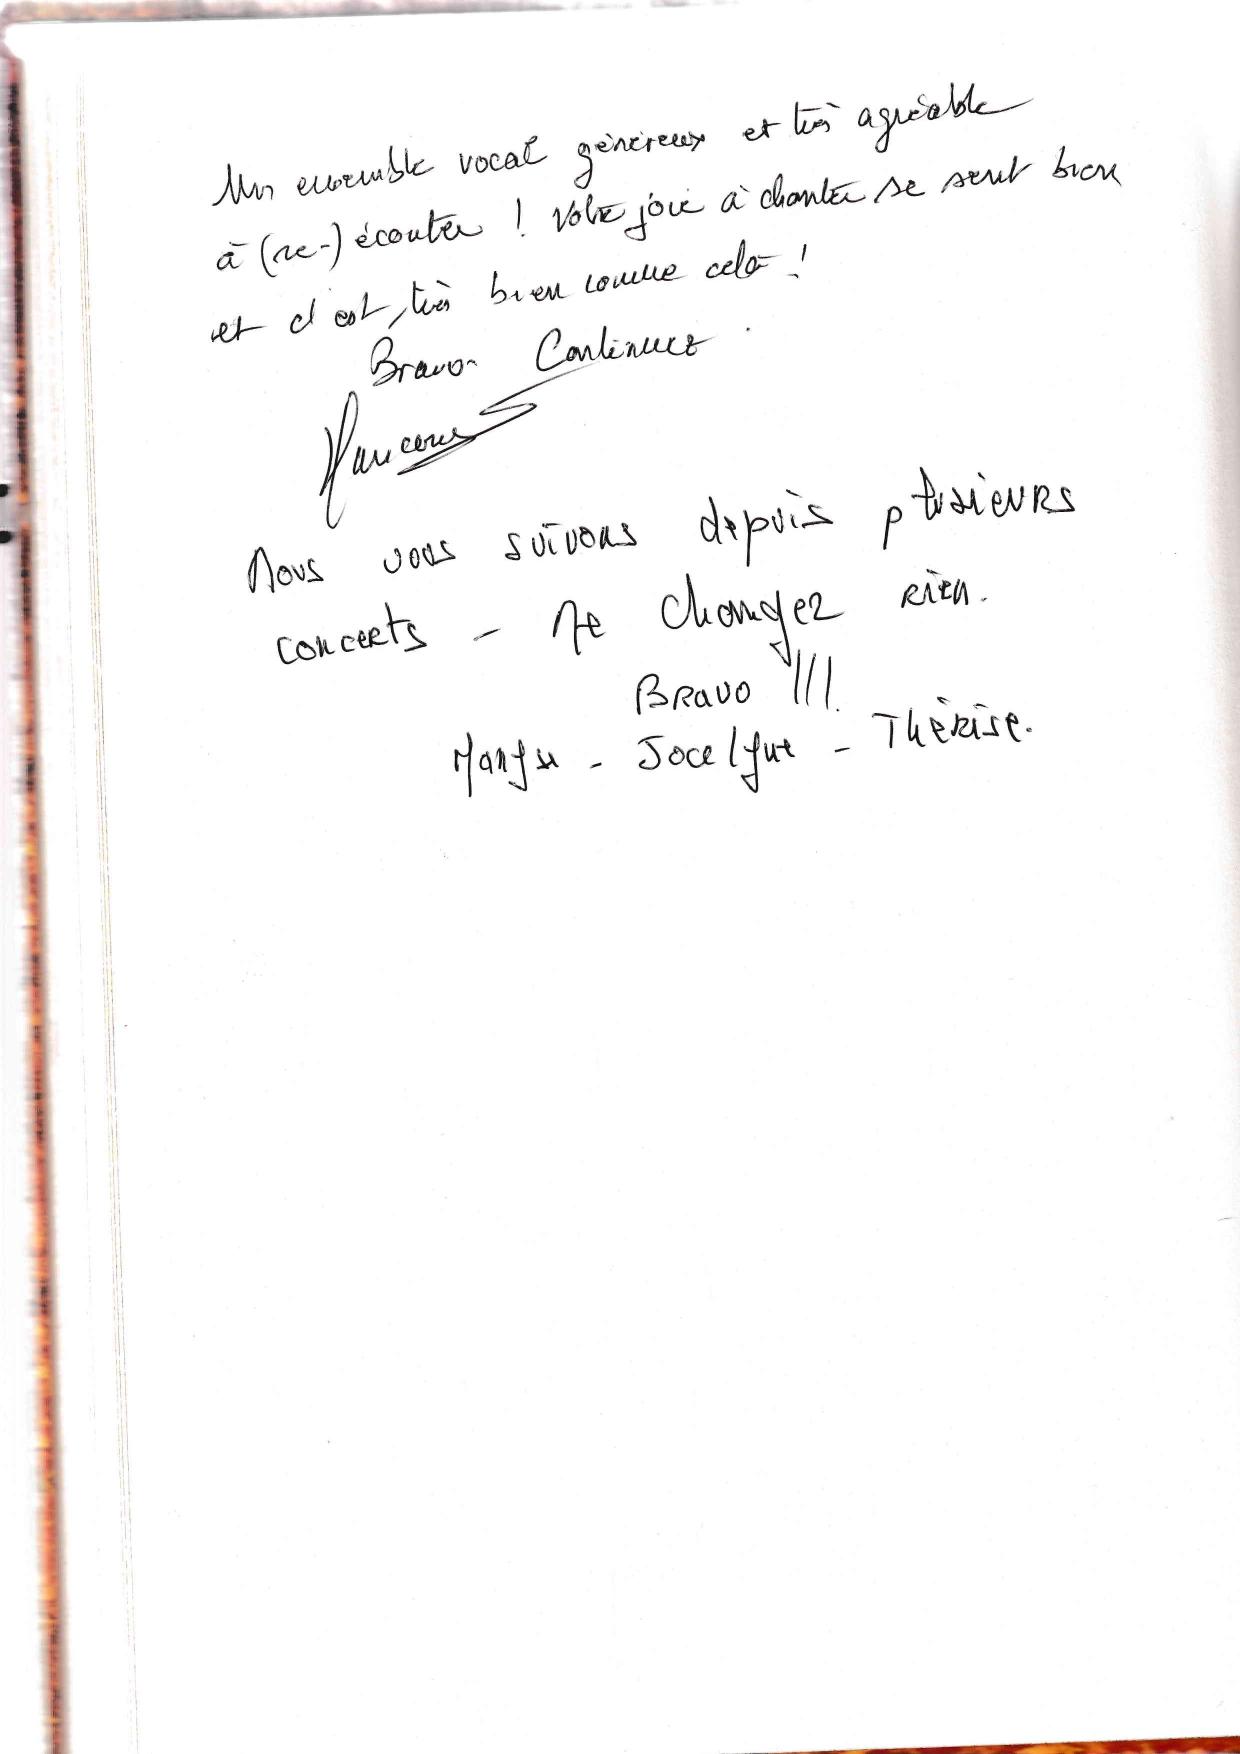 Un ensemble vocal généreux et très agréable
à (re-) écouter ! Votre joie à chanter se sent bien
et c'est très bien comme cela !
Bravo - Continuez .
Nous vous suivons depuis plusieurs
concerts - Ne changez rien.
Bravo !!!
- Jocelyne - Thérèse.